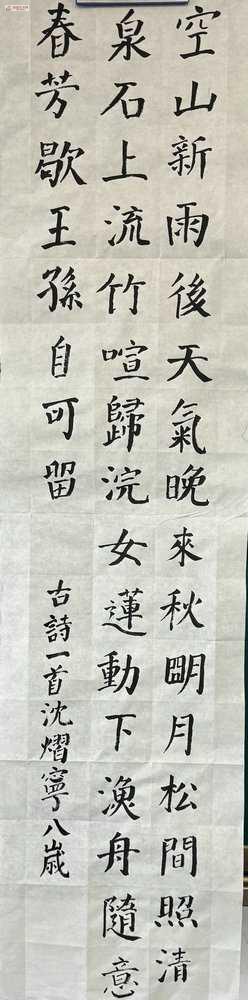 空山新雨後天氣晚來秋朙月松間照清
泉石上流竹喧歸浣女蓮動下漁舟隨意
春芳歇王孫自可留
古詩一首沈熠寧八歲